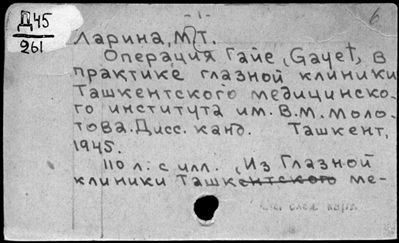 -1-
6
Д45
261
Ларина, М.Т.
Операция Гайе (Gayet) в
практике глазной клиники
Ташкентского медицинско-
го института им. В.М. Моло-
това. Дисс. канд. Ташкент,
1945.
110 л. с илл. (Из Глазной
клиники Ташкентского ме-
см. след. карт.